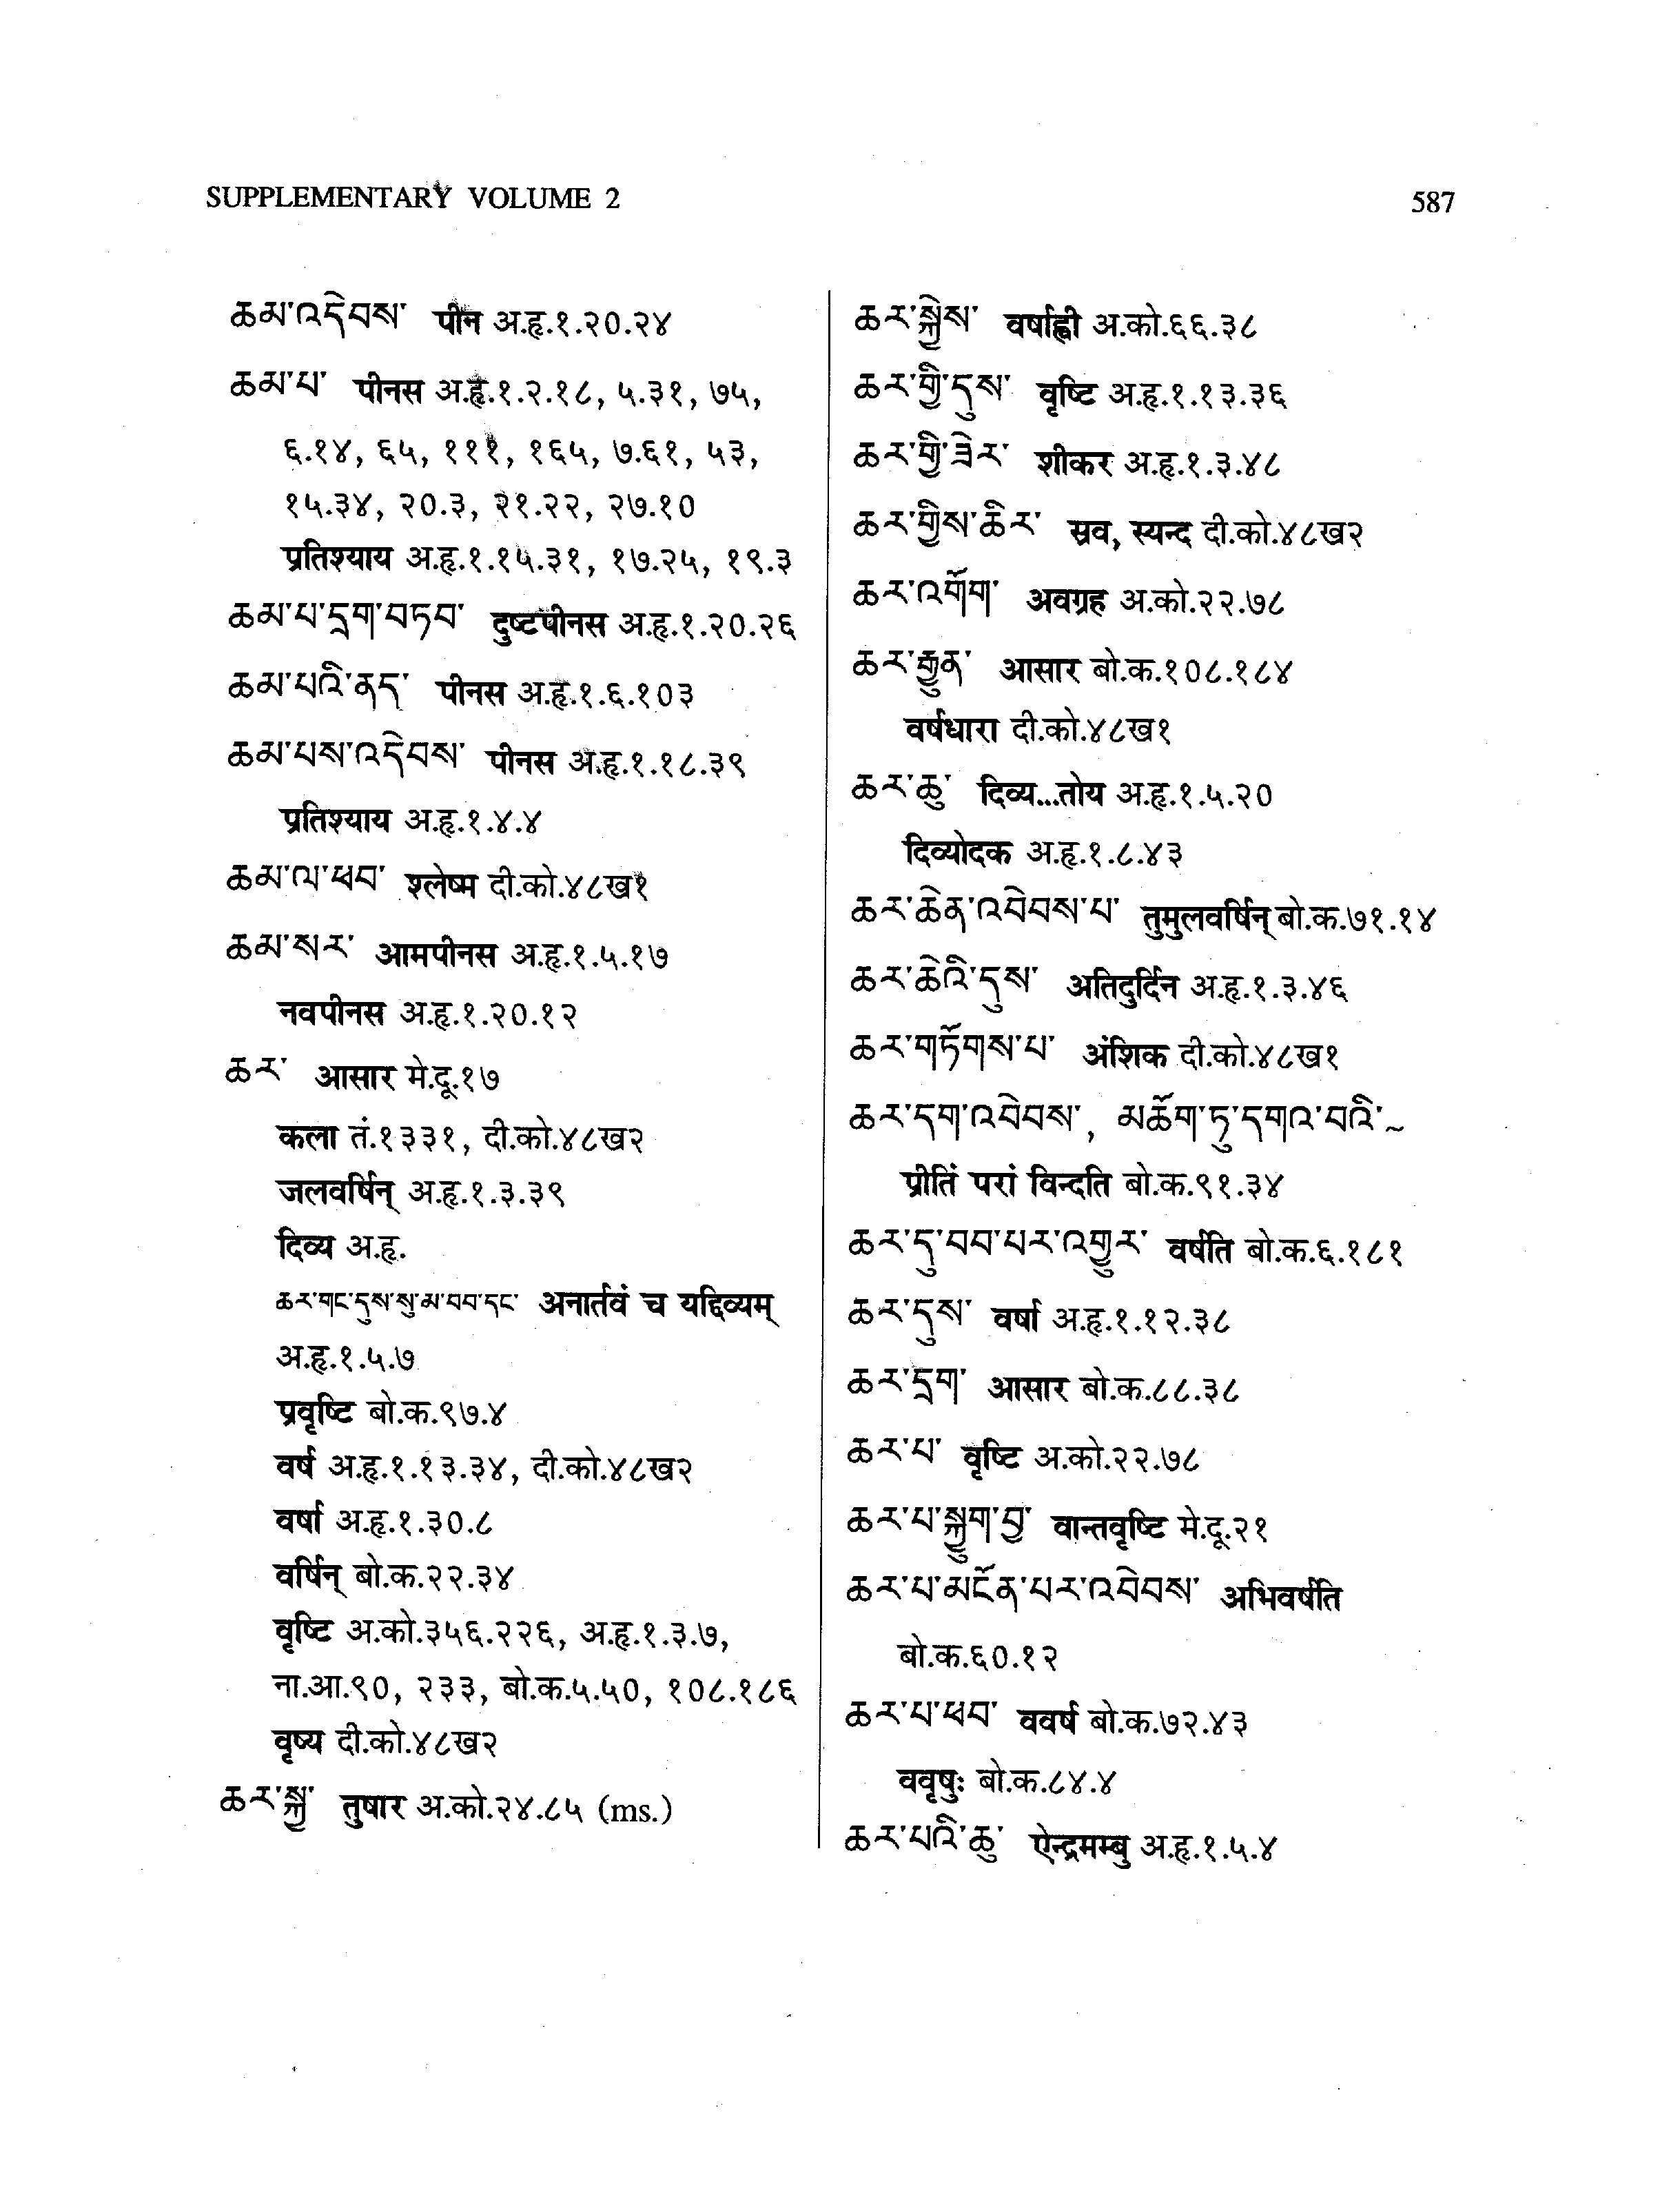 SUPPLEMENTARY VOLUME 2
587
ཆམ་འདེབས་ पीन अ.हृ.१.२०.२४
ཆམ་པ་ पीनस अ.हृ.१.२.१८, ५.३१, ७५,
६.१४, ६५, १११, १६५, ७.६१, ५३,
१५.३४, २०.३, २१.२२, २७.१०
प्रतिश्याय अ.हृ.१.१५.३१, १७.२५, १९.३
ཆམ་པ་དྲག་བཏབ་ दुष्टपीनस अ.हृ.१.२०.२६
ཆམ་པའི་ནད་ पीनस अ.हृ.१.६.१०३
ཆམ་པས་འདེབས་ पीनस अ.हृ.१.१८.३९
प्रतिश्याय अ.हृ.१.४.४
ཆམ་ལ་ཕབ་ श्लेष्म दी.को.४८ख१
ཆམ་སར་ आमपीनस अ.हृ.१.५.१७
नवपीनस अ.हृ.१.२०.१२
ཆར་ आसार मे.दू.१७
कला तं.१३३१, दी.को.४८ख२
जलवर्षिन् अ.हृ.१.३.३९
दिव्य अ.हृ.
ཆར་གང་དུས་སུ་མ་བབ་དང་ अनार्तवं च यद्दिव्यम्
अ.हृ.१.५.७
प्रवृष्टि बो.क.९७.४
वर्ष अ.हृ.१.१३.३४, दी.को.४८ख२
वर्षा अ.हृ.१.३०.८
वर्षिन् बो.क.२२.३४
वृष्टि अ.को.३५६.२२६, अ.हृ.१.३.७,
ना.आ.९०, २३३, बो.क.५.५०, १०८.१८६
वृष्य दी.को.४८ख२
ཆར་སྐྱ་ तुषार अ.को.२४.८५ (ms.)
ཆར་སྐྱེས་ वर्षाह्वी अ.को.६६.३८
ཆར་གྱི་དུས་ वृष्टि अ.हृ.१.१३.३६
ཆར་གྱི་ཟེར་ शीकर अ.हृ.१.३.४८
ཆར་གྱིས་ཆིར་ स्रव, स्यन्द दी.को.४८ख२
ཆར་འགོག་ अवग्रह अ.को.२२.७८
ཆར་རྒྱུན་ आसार बो.क.१०८.१८४
वर्षधारा दी.को.४८ख१
ཆར་ཆུ་ दिव्य...तोय अ.हृ.१.५.२०
दिव्योदक अ.हृ.१.८.४३
ཆར་ཆེན་འབེབས་པ་ तुमुलवर्षिन् बो.क.७१.१४
ཆར་ཆེའི་དུས་ अतिदुर्दिन अ.हृ.१.३.४६
ཆར་གཏོགས་པ་ अंशिक दी.को.४८ख१
ཆར་དག་འབེབས་, མཆོག་ཏུ་དགའ་བའི་~
प्रीतिं परां विन्दति बो.क.९१.३४
ཆར་དུ་བབ་པར་འགྱུར་ वर्षति बो.क.६.१८१
ཆར་དུས་ वर्षा अ.हृ.१.१२.३८
ཆར་དྲག་ आसार बो.क.८८.३८
ཆར་པ་ वृष्टि अ.को.२२.७८
ཆར་པ་སྐྱུག་བྱ་ वान्तवृष्टि मे.दू.२१
ཆར་པ་མངོན་པར་འབེབས་ अभिवर्षति
बो.क.६०.१२
ཆར་པ་ཕབ་ ववर्ष बो.क.७२.४३
ववृषुः बो.क.८४.४
ཆར་པའི་ཆུ་ ऐन्द्रमम्बु अ.हृ.१.५.४